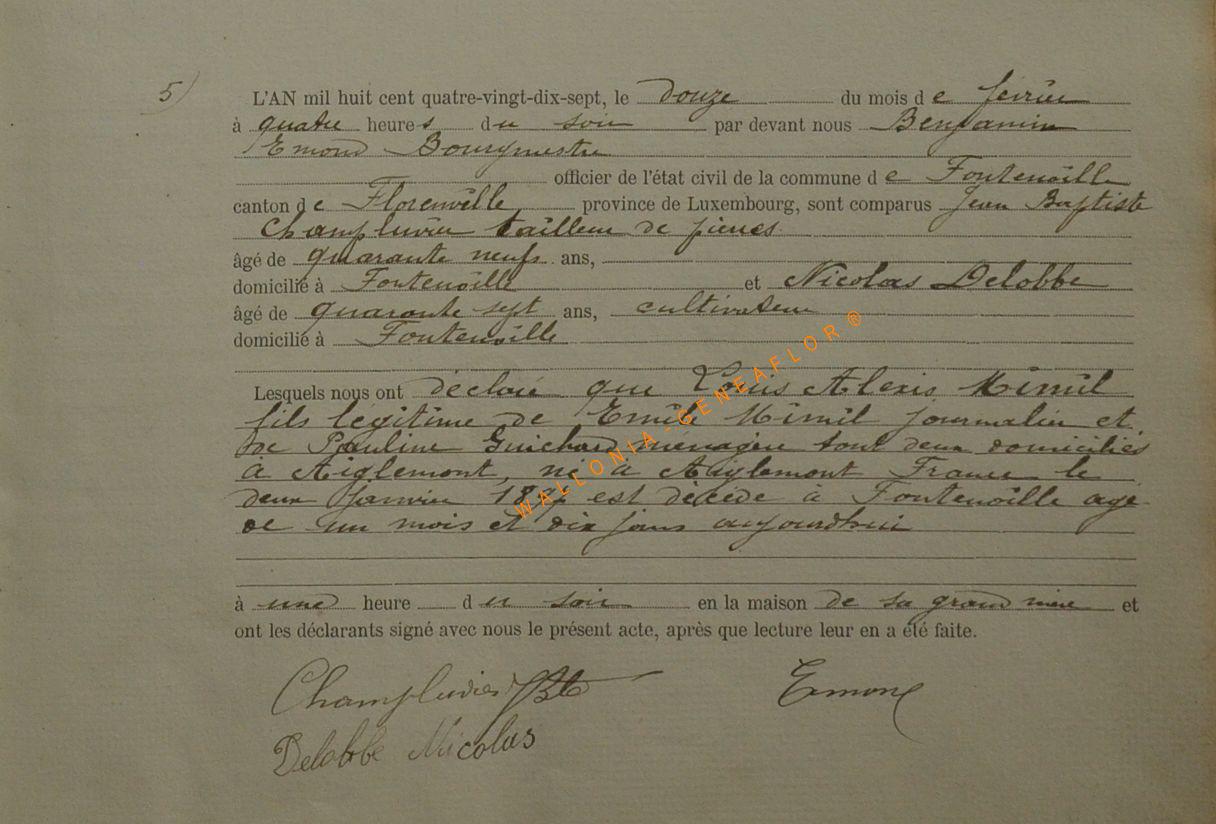 5)
L'AN mil huit cent quatre-vingt-dix-sept, le douze du mois de février
à quatre heures du soir par devant nous Benjamin
Emond Bourgmestre
officier de l'état civil de la commune de Fontenoille
canton de Florenville province de Luxembourg, sont comparus Jean Baptiste
Champluvier tailleur de pierres
âgé de quarante neufs ans,
domicilié à Fontenoille et Nicolas Delobbe
âgé de quarante sept ans, cultivateur
domicilié à Fontenoille
Lesquels nous ont déclaré que Louis Alexis
fils légitime de Emile journalier et
de Pauline Guichard ménagère tout deux domiciliés
à Aiglemont, né à Aiglemont France le
deux Janvier 1897 est décédé à Fontenoille agé
de un mois et dix jours aujourdhui
à une heure du soir en la maison de sa grand mère et
ont les déclarants signé avec nous le présent acte, après que lecture leur en a été faite.
Champluvier JBte Emond
Delobbe Nicolas
WALLONIA-GENEAFLOR®